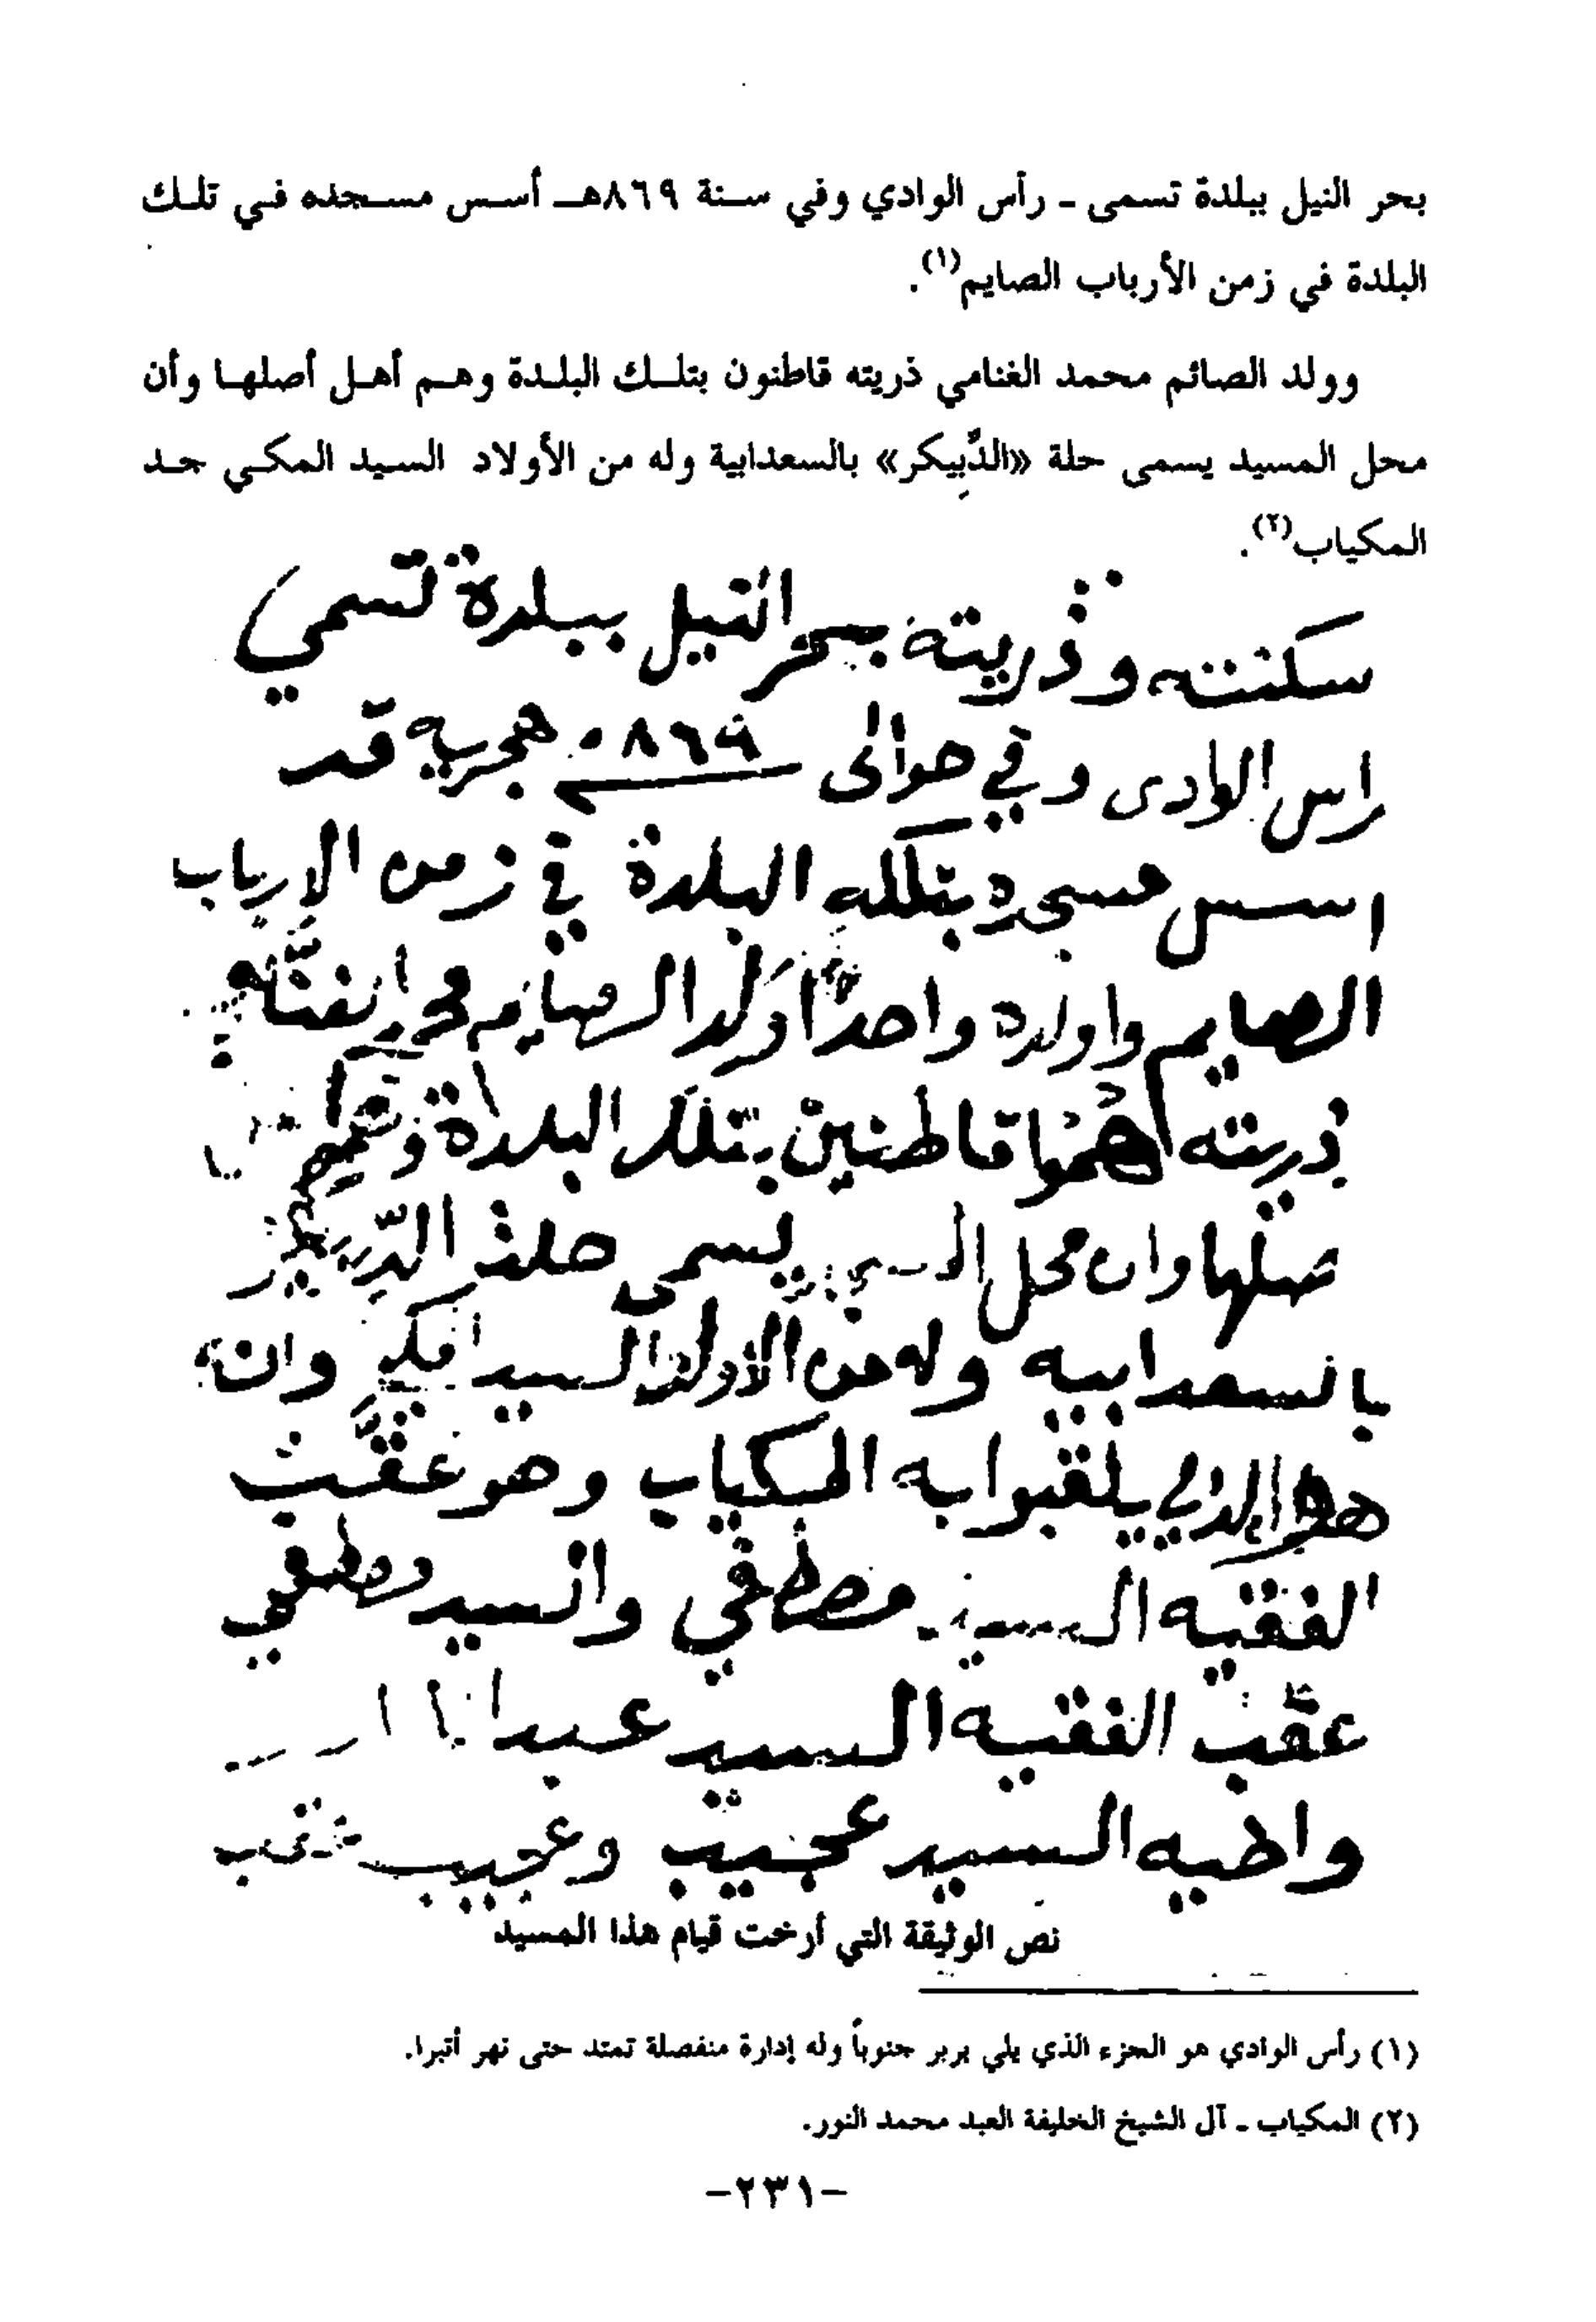 بحر النيل ببلدة تسمى - رأس الوادي وفي سنة ٨٦٩هـ أسس مسجده في تلك
البلدة في زمن الأرباب الصايم(١).
وولد الصائم محمد الغنامي ذريته قاطنون بتلك البلدة وهم أهل أصلها وأن
محل المسيد يسمى حلة «الدِّبيكر» بالسعدابية وله من الأولاد السيد المكي جد
المكياب(٢).
سكنته وذريته ببحر النيل ببلدة تسمي
راس الوادى وفي حوالى ٨٦٩ هجريه قد
اسس مسجده بتلكه البلدة في زمن الارباب
الصايم واولده واحدًا ولد الصايم محمد
ذريته قاطنين بتلك البلدة
صلها وان محل يسمى حلة
بالسعدابيه وله من الأولاد السيد وان
هوا الذي يلقبوا به المكياب وهو عقَّب
الفقيه السيد مصطفي والسيد مصطفي
عقب الفقيه السيد
واخيه السيد عجيب وعجيب عقب
نص الوثيقة التي أرخت قيام هذا المسيد
(١) رأس الوادي هو الجزء الذي يلي بربر جنوباً وله إدارة منفصلة تمتد حتى نهر أتبرا.
(٢) المكياب - آل الشيخ الخليفة العبد محمد النور.
-٢٣١-